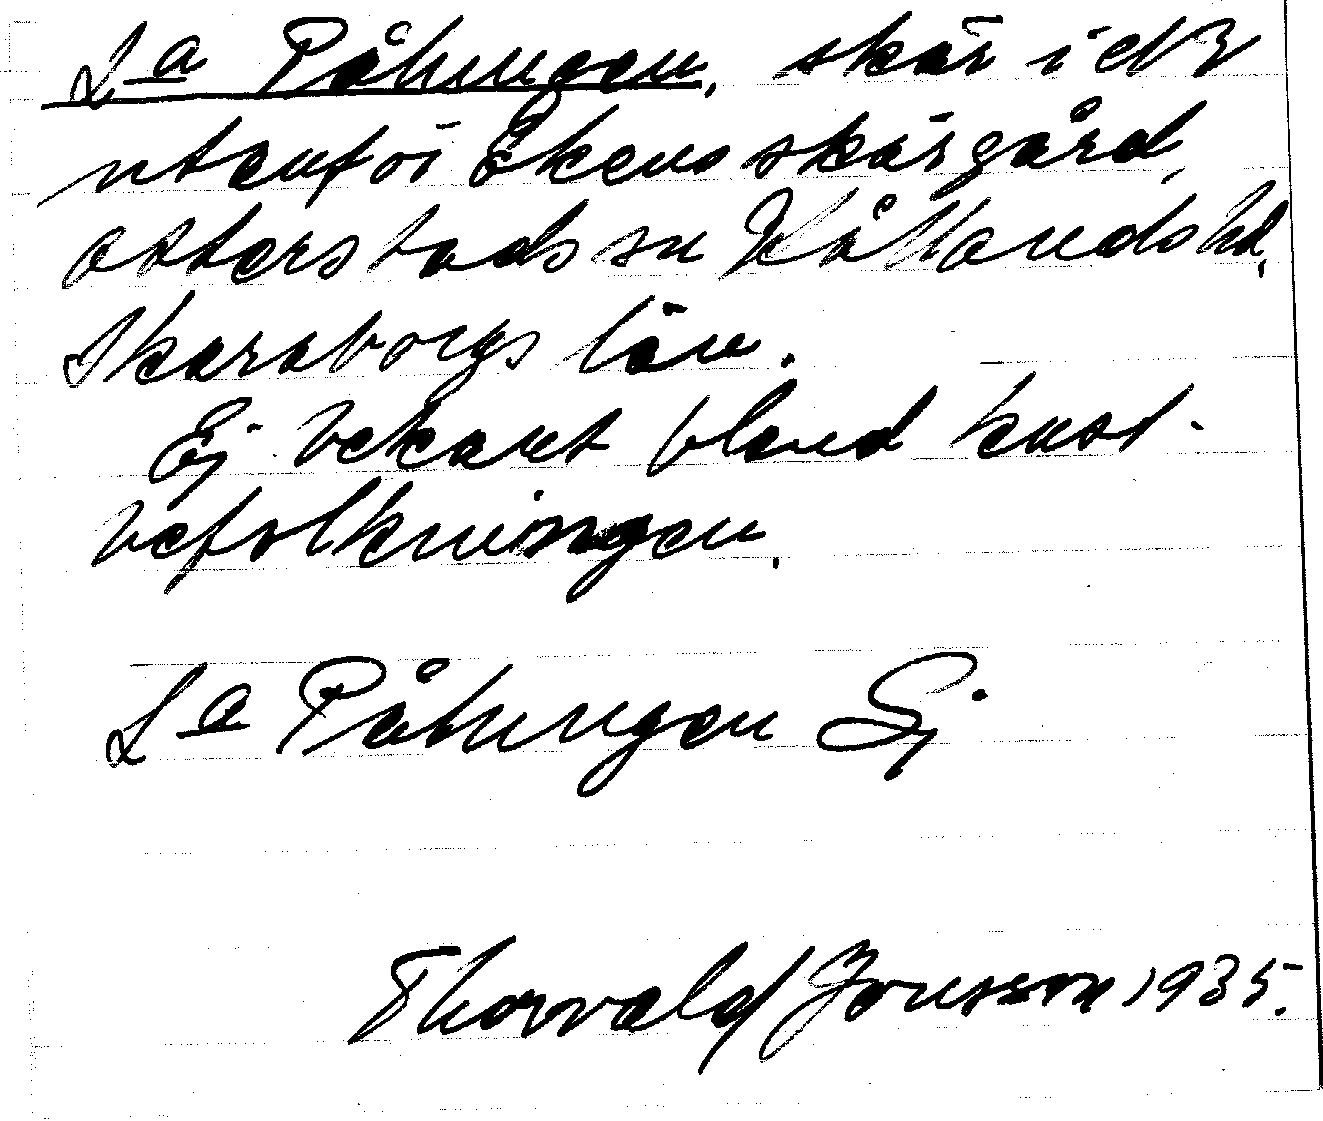 La Påhungen, skär i d N
utanför Ekens skärgård,
Otterstads sn Kållands hd,
Skaraborgs län.
Ej bekant bland kust-
befolkningen.
La Påhungen Ej
Thorvald Jonsson 1935.